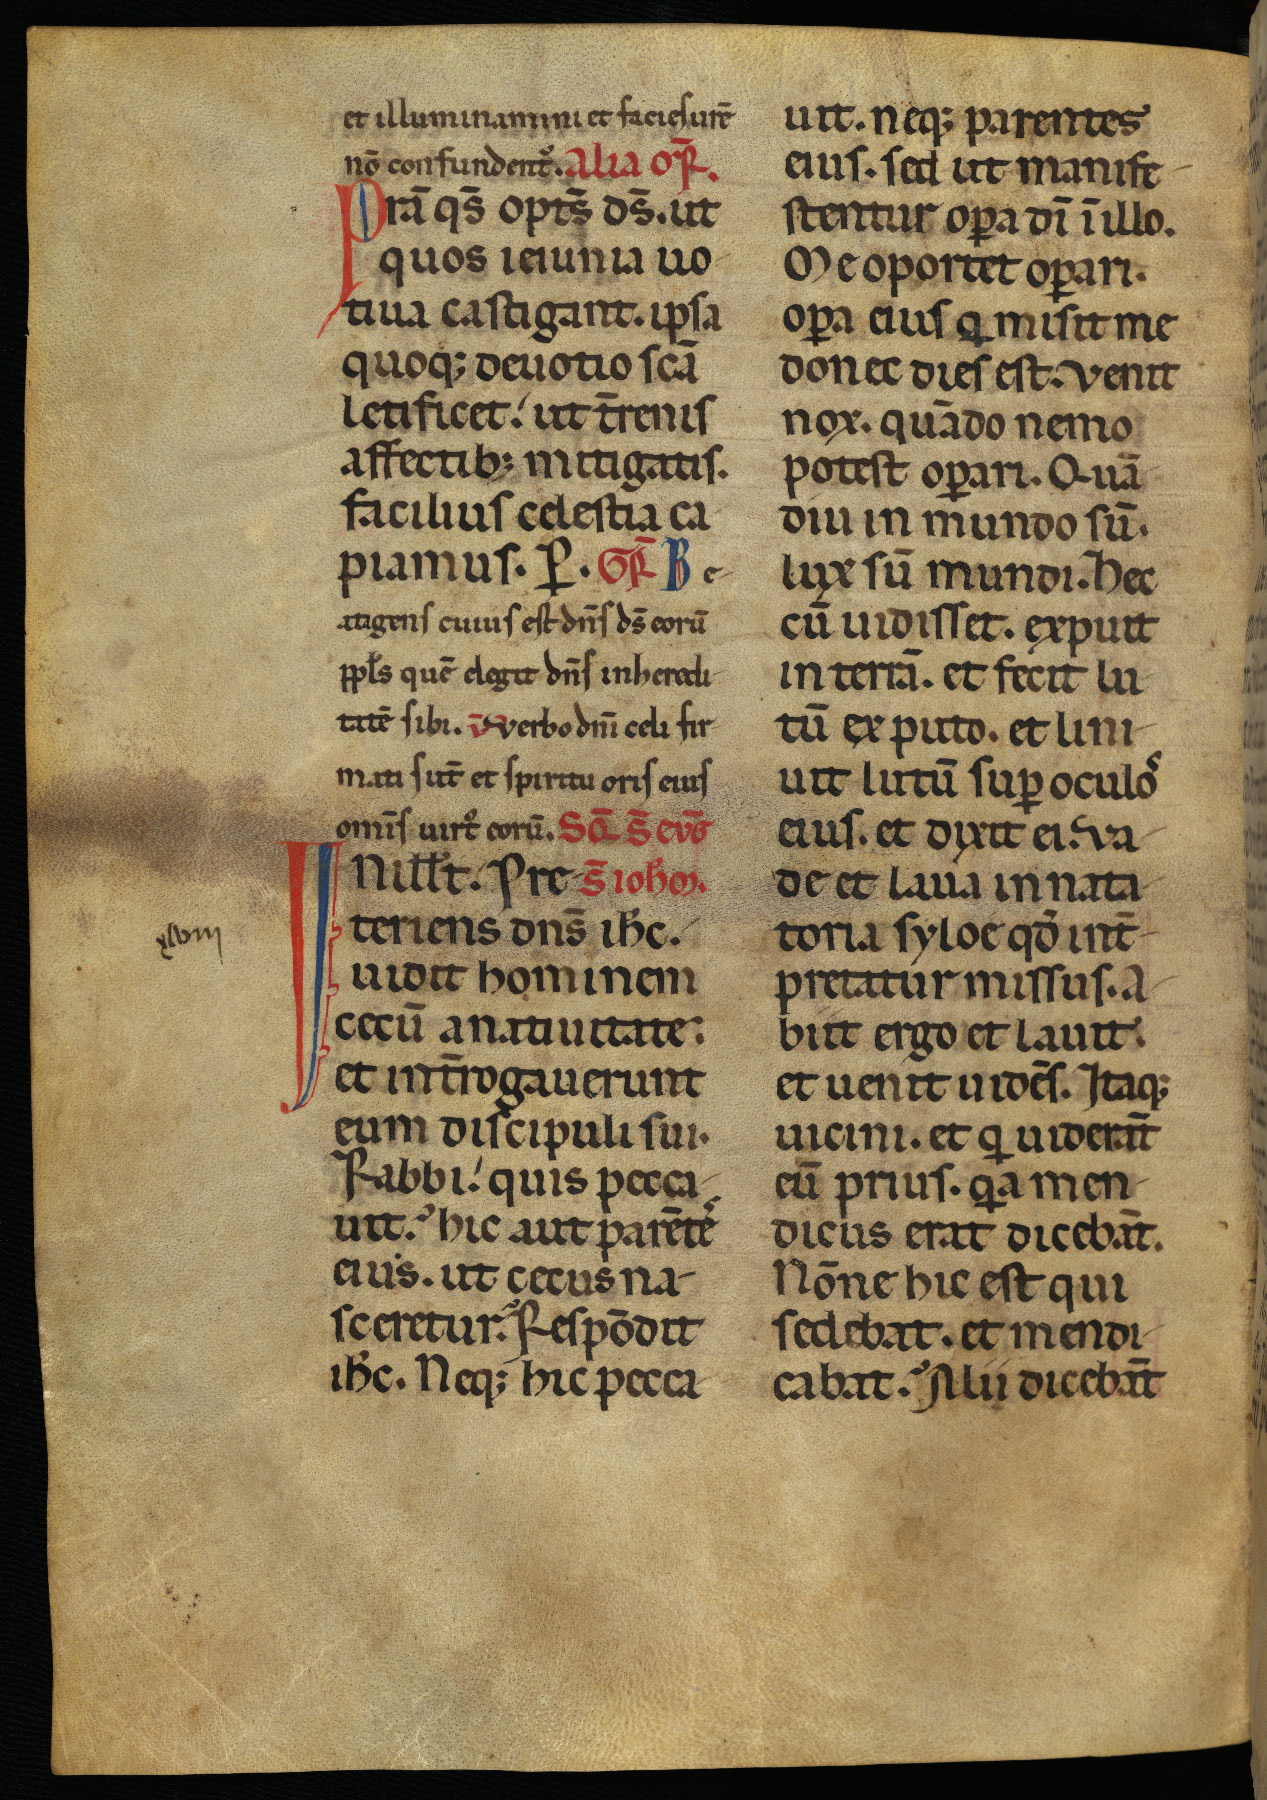 et illuminamini et facies urē
nō confundentᷣ. Alia or̄.
Prā qs̄ opts̄ ds̄. ut
quos ieiunia uo-
tiua castigant. ipsa
quoq; deuotio scā
letificet. ut t̄renis
affectib; mitigatis.
facilius celestia ca-
piamus. P. Gr̄ Be-
ata gens cuius est dn̄s ds̄ eorū
ppl̄s quē elegit dn̄s in heredi-
tatē sibi. v̄ verbo dn̄i celi fir-
mati sūt et spiritu oris eius
omn̄s uirtᷣ eorū. Scd̄ s̄ eug̅
IN ill̄t. Pre- s̄ ioh̄m.
teriens dns̄ ih̄c.
xlviii
uidit hominem
cecū a natiuitate.
et int̄rogauerunt
eum discipuli sui.
Rabbi. quis pecca-
uit. hic aut parētes
eius. ut cecus na-
sceretur. Respōdit
ih̄c. Neq; hic pecca
uit. neq; parentes
eius. sed ut manife-
stentur oꝑa dī ī illo.
Me oportet oꝑari.
oꝑa eius q misit me
donec dies est. venit
nox. quādo nemo
potest oꝑari. Quā-
diu in mundo sū.
lux sū mundi. Hec
cū uidisset. expuit
in terrā. et fecit lu-
tū ex puto. et lini-
uit lutū suꝑ oculos
eius. et dixit ei. va-
de et laua in nata-
toria syloe qd̄ int̄-
pretatur missus. A-
biit ergo et lauit.
et uenit uidēs. Itaq;
uicini. et q uiderāt
eū prius. qa men-
dicus erat dicebāt.
Nōne hic est qui
sedebat. et mendi-
cabat. Alii dicebāt